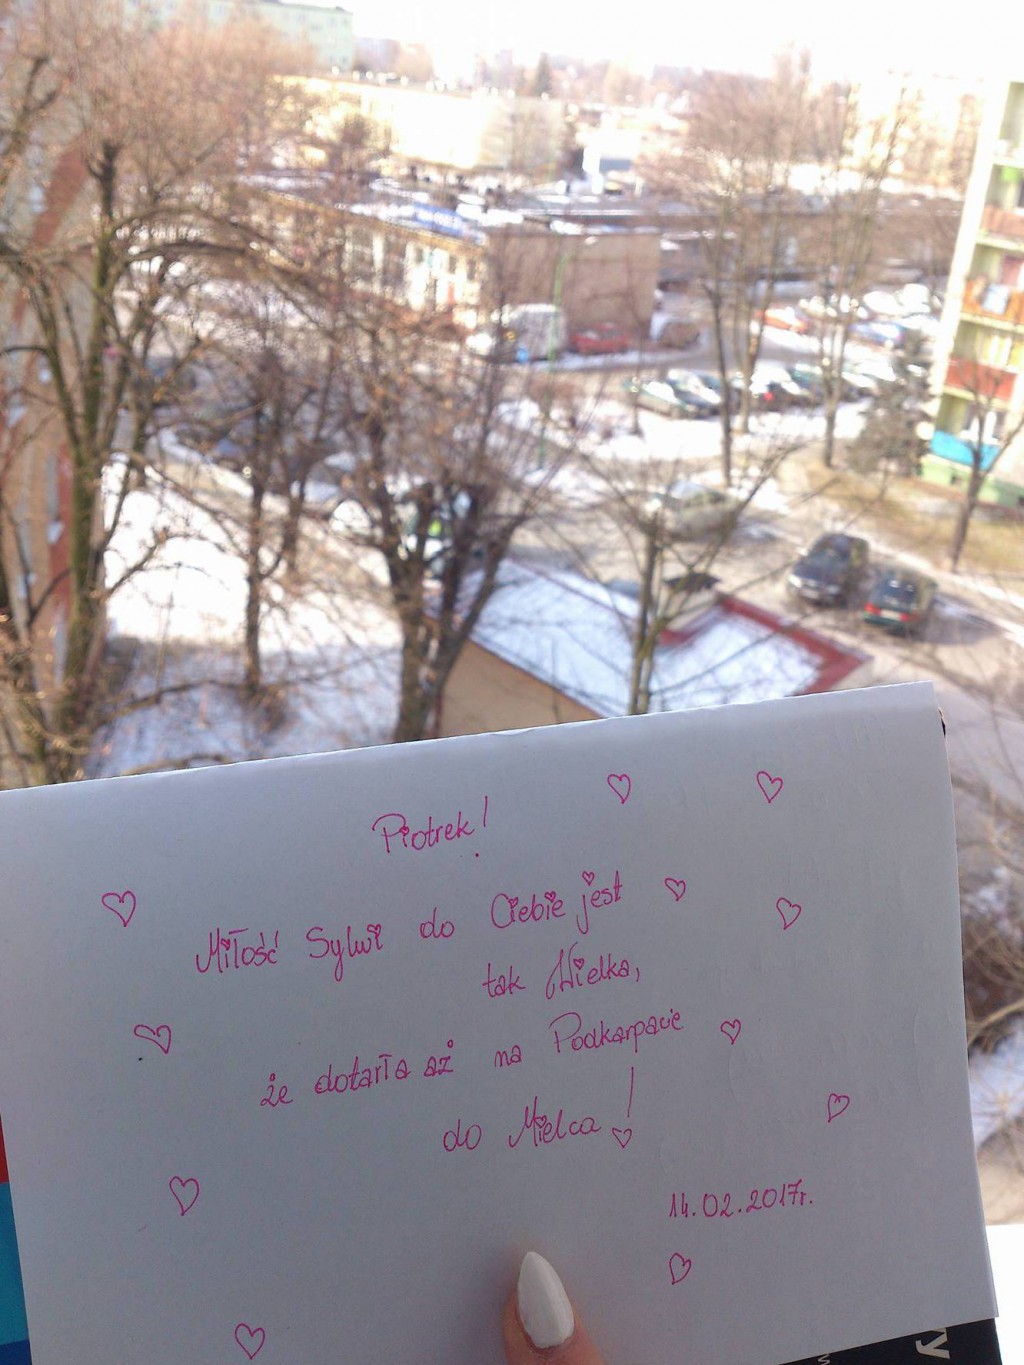 Piotrek!
Miłość Sylwi do Ciebie jest
tak Wielka,
że dotarła aż na Podkarpacie
do Mielca!
14.02.2017r.